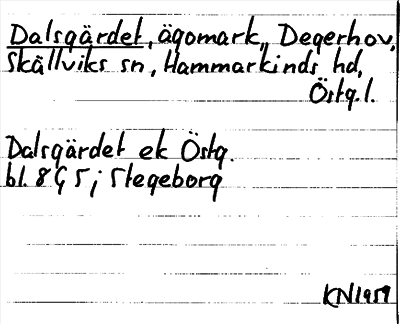 Dalsgärdet, ägomark, Degerhov,
Skällviks sn, Hammarkinds hd,
Östg. l.
Dalsgärdet ek Östg.
bl. 8 G 5 j Stegeborg
KN 1959